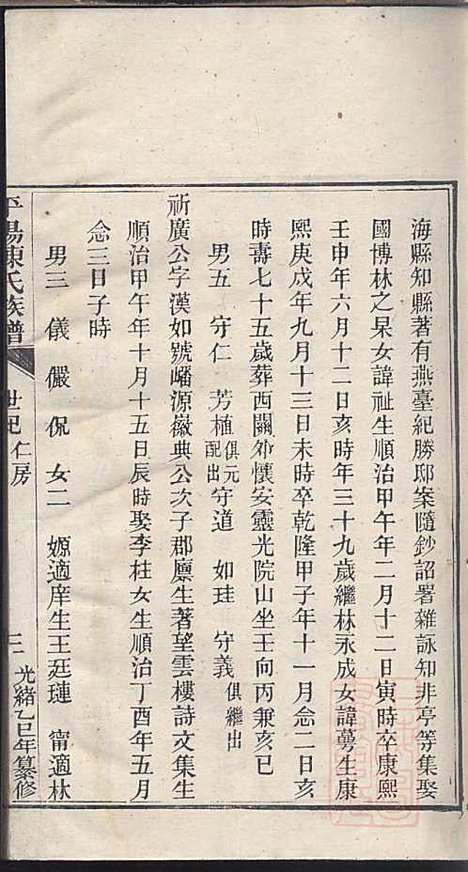 海縣知縣著有燕臺紀勝邸案隨鈔詔署雜詠知非亭等集娶
國博林之杲女諱祉生順治甲午年二月十二日寅時卒康熙
壬申年六月十二日亥時年三十九歲繼林永成女諱蕚生康
熙庚戌年九月十三日未時卒乾隆甲子年十一月念二日亥
時壽七十五歲葬西關外懷安靈光院山坐壬向丙兼亥巳
男五 守仁 芳植俱元配出守道 如珪 守義俱繼出
祈廣公字漢如號嶓源徽典公次子郡廩生著望雲樓詩文集生
順治甲午年十月十五日辰時娶李柱女生順治丁酉年五月
念三日子時
男三 儀 儼 侃 女二 嫄適庠生王廷璉 甯適林
平陽陳氏族譜 世紀 仁房 三 光緒乙巳年纂修